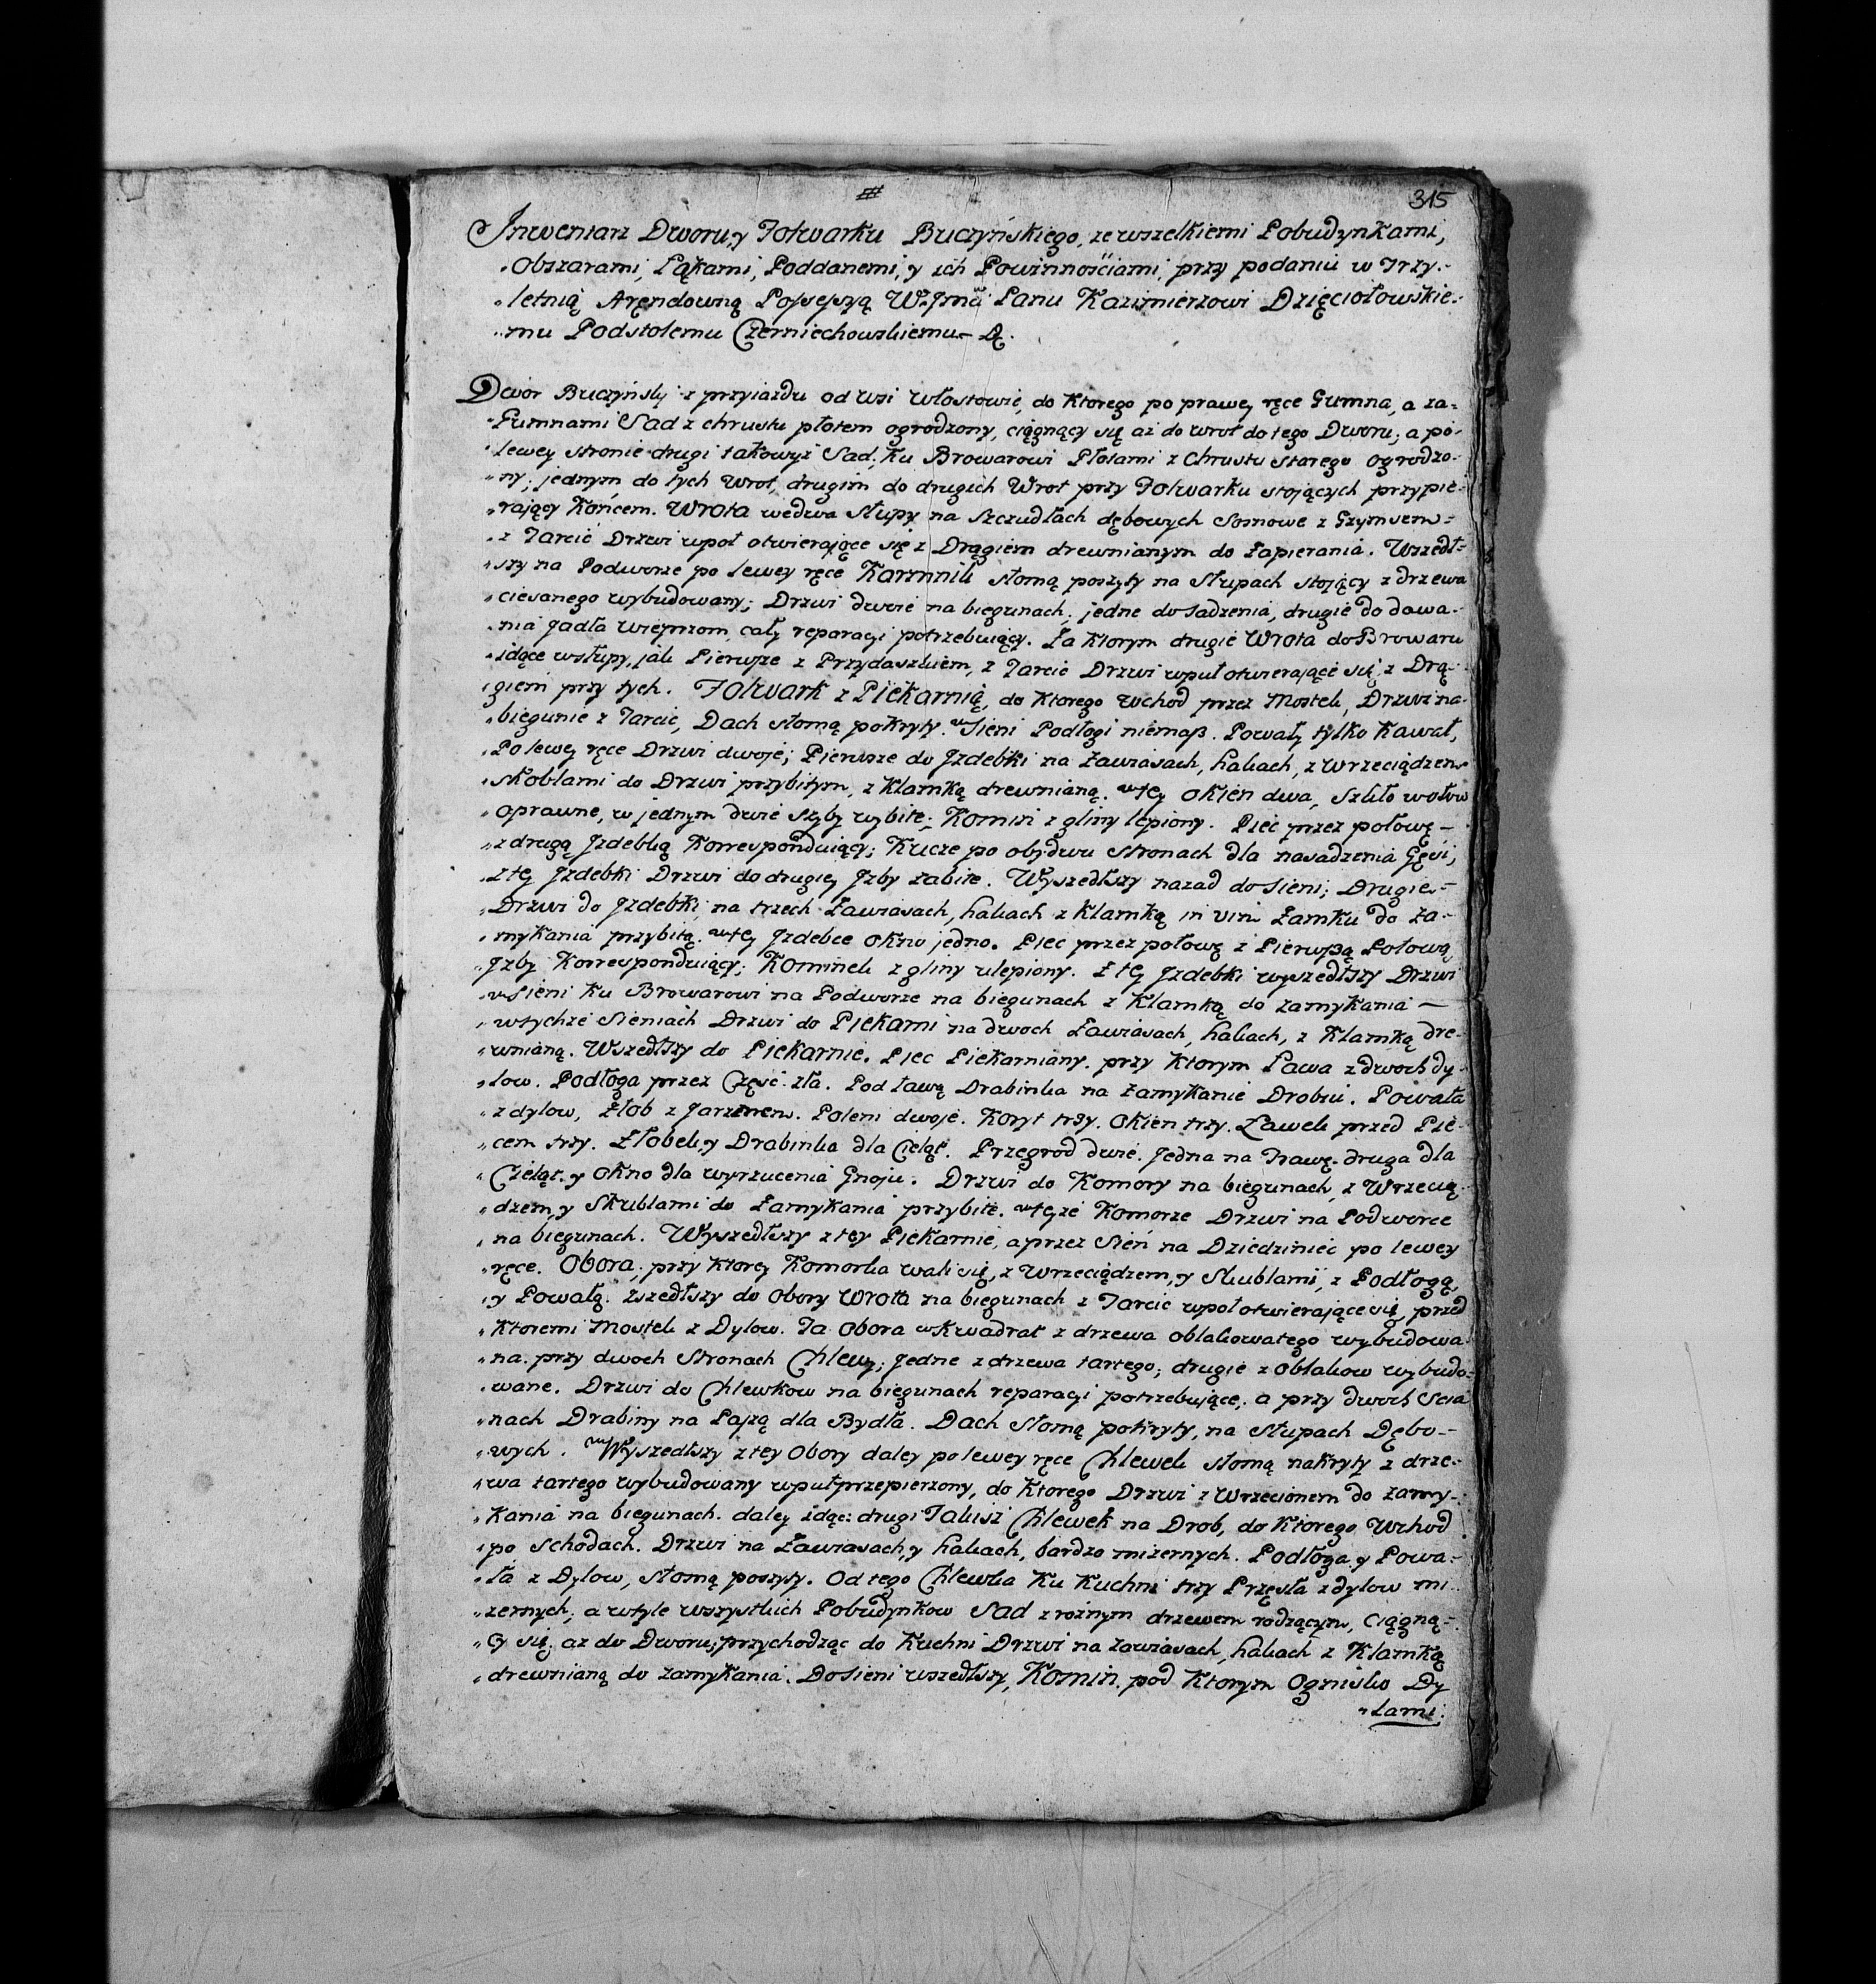 315
Inwentarz Dworu, y Folwarku Buczyńskiego, ze wszelkiemi Pobudynkami,
Obszarami, Łąkami, Poddanemi, y ich Powinnościami, przy podaniu w Trzy-
letnią Arendowną Possessyą W. Jmci Panu Kazimierzowi Dzięciołowskie-
mu Podstolemu Czerniechowskiemu
Dwór Buczyński z przyiazdu od wsi Włostowic, do ktorego po prawey ręce Gumna, a za-
Gumnami Sad z chrustu płotem ogrodzony, ciągnący się aż do wrot do tego Dworu; a po-
lewey stronie drugi takowyż Sad, ku Browarowi Płotami z Chrustu starego ogrodzo-
ny; jednym do tych Wrot, drugim do drugich Wrot przy Folwarku stojących przypie-
rający Końcem. Wrota we dwa słupy na szczudłach dębowych Sosnowe z Gzymsem
z Tarcic Drzwi wpoł otwierające się z Drągiem drewnianym do zapierania. Wszedł-
szy na Podworze po lewey ręce Karmnik słomą poszyty na słupach stojący z drzewa
ciesanego wybudowany; Drzwi dwoie na biegunach, jedne do sadzenia, drugie do dawa-
nia jadła wieprzom, cały reparacyi potrzebuiący. Za ktorym drugie Wrota do Browaru
idące w słupy, jak Pierwsze z Przydaszkiem, z Tarcic Drzwi wpuł otwierające się z Drą-
giem przy tych. Folwark z Piekarnią, do ktorego wchod przez Mostek, Drzwi na-
biegunie z Tarcic, Dach słomą pokryty. w Sieni Podłogi niemaß. Powały tylko kawał,
Po lewey ręce Drzwi dwoje; Pierwsze do Jzdebki na zawiasach, hakach, z wrzeciądzem
skoblami do Drzwi przybitym, z Klamką drewnianą. w tey okien dwa, Szkło w ołow
oprawne, w jednym dwie szyby wybite; Komin z gliny lepiony. Piec przez połowę
z drugą Jzdebką Korrespondujący; Kucze po obydwu stronach dla nasadzenia Gęsi;
z tey Jzdebki Drzwi do drugiey Jzby zabite. Wyszedłszy nazad do sieni; Drugie
Drzwi do Jzdebki na trzech zawiasach, hakach z Klamką in vim zamku do za-
mykania przybitą. w tey Jzdebce okno jedno. Piec przez połowę z Pierwßą Połową
Jzby Korrespondujący; Kominek z gliny ulepiony. z tey Jzdebki wyszedłszy Drzwi
w sieni ku Browarowi na Podworze na biegunach z Klamką do zamykania
w tychże Sieniach Drzwi do Piekarni na dwoch zawiasach, hakach, z Klamką dre-
wnianą. Wszedłszy do Piekarnie. Piec Piekarniany. przy ktorym Ława z dwoch dy-
low. Podłoga przez Część zła. Pod ławą Drabinka na zamykanie Drobiu. Powała
z dylow, Żłob z Jarzmem. Poleni dwoje. Koryt trzy. Okien trzy. Ławek przed Pie-
cem trzy. Żłobek, y Drabinka dla Cieląt. Przegrod dwie. Jedna na Trawę, druga dla
Cieląt. y okno dla wyrzucenia Gnoju. Drzwi do Komory na biegunach, z Wrzecią-
dzem, y Skublami do zamykania przybite. w teyże Komorze Drzwi na Podworce
na biegunach. Wyszedłszy z tey Piekarnie, a przez Sień na Dziedziniec po lewey
ręce. Obora; przy ktorey Komorka wali się, z Wrzeciądzem, y Skublami, z Podłogą,
y Powałą. Wszedłszy do Obory Wrota na biegunach z Tarcic wpoł otwierające się, przed
ktoremi Mostek z Dylow. Ta Obora w Kwadrat z drzewa oblakowatego wybudowa-
na. przy dwoch Stronach Chlewy; Jedne z drzewa tartego; drugie z oblakow wybudo-
wane. Drzwi do Chlewkow na biegunach reparacyi potrzebujące, a przy dwoch Scia
nach Drabiny na Paszą dla Bydła. Dach słomą pokryty, na słupach Dębo-
wych. Wyszedłszy z tey Obory daley po lewey ręce Chlewek słomą nakryty z drze-
wa tartego wybudowany wpuł przepierzony, do ktorego Drzwi z Wrzecionem do zamy-
kania na biegunach. daley idąc: drugi Takiż Chlewek na Drob, do ktorego Wchod
po Schodach. Drzwi na zawiasach, y hakach, bardzo mizernych. Podłoga y Powa-
ła z Dylow, słomą poszyty. Od tego Chlewka ku Kuchni trzy Przęsła z dylow mi
zernych; a w tyle wszystkich Pobudynkow Sad z roznym drzewem rodzącym, ciągną-
cy się aż do Dworu; przychodząc do Kuchni Drzwi na zawiasach, hakach z Klamką
drewnianą do zamykania. Do sieni wszedłszy, Komin, pod ktorym Ognisko Dy
lami